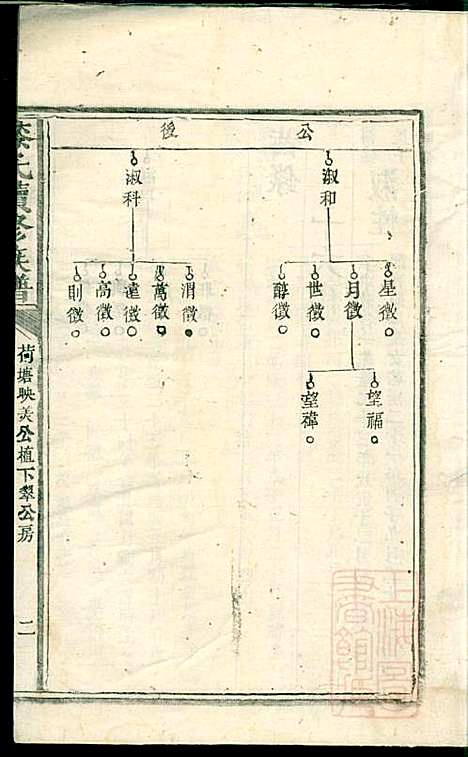 公後
淑和
星徵
月徵
世徵
醇徵
望福
望禕
淑科
渭徵
萬徵
達徵
高徵
則徵
氏續修族譜
荷塘映美公植下犂公房
二